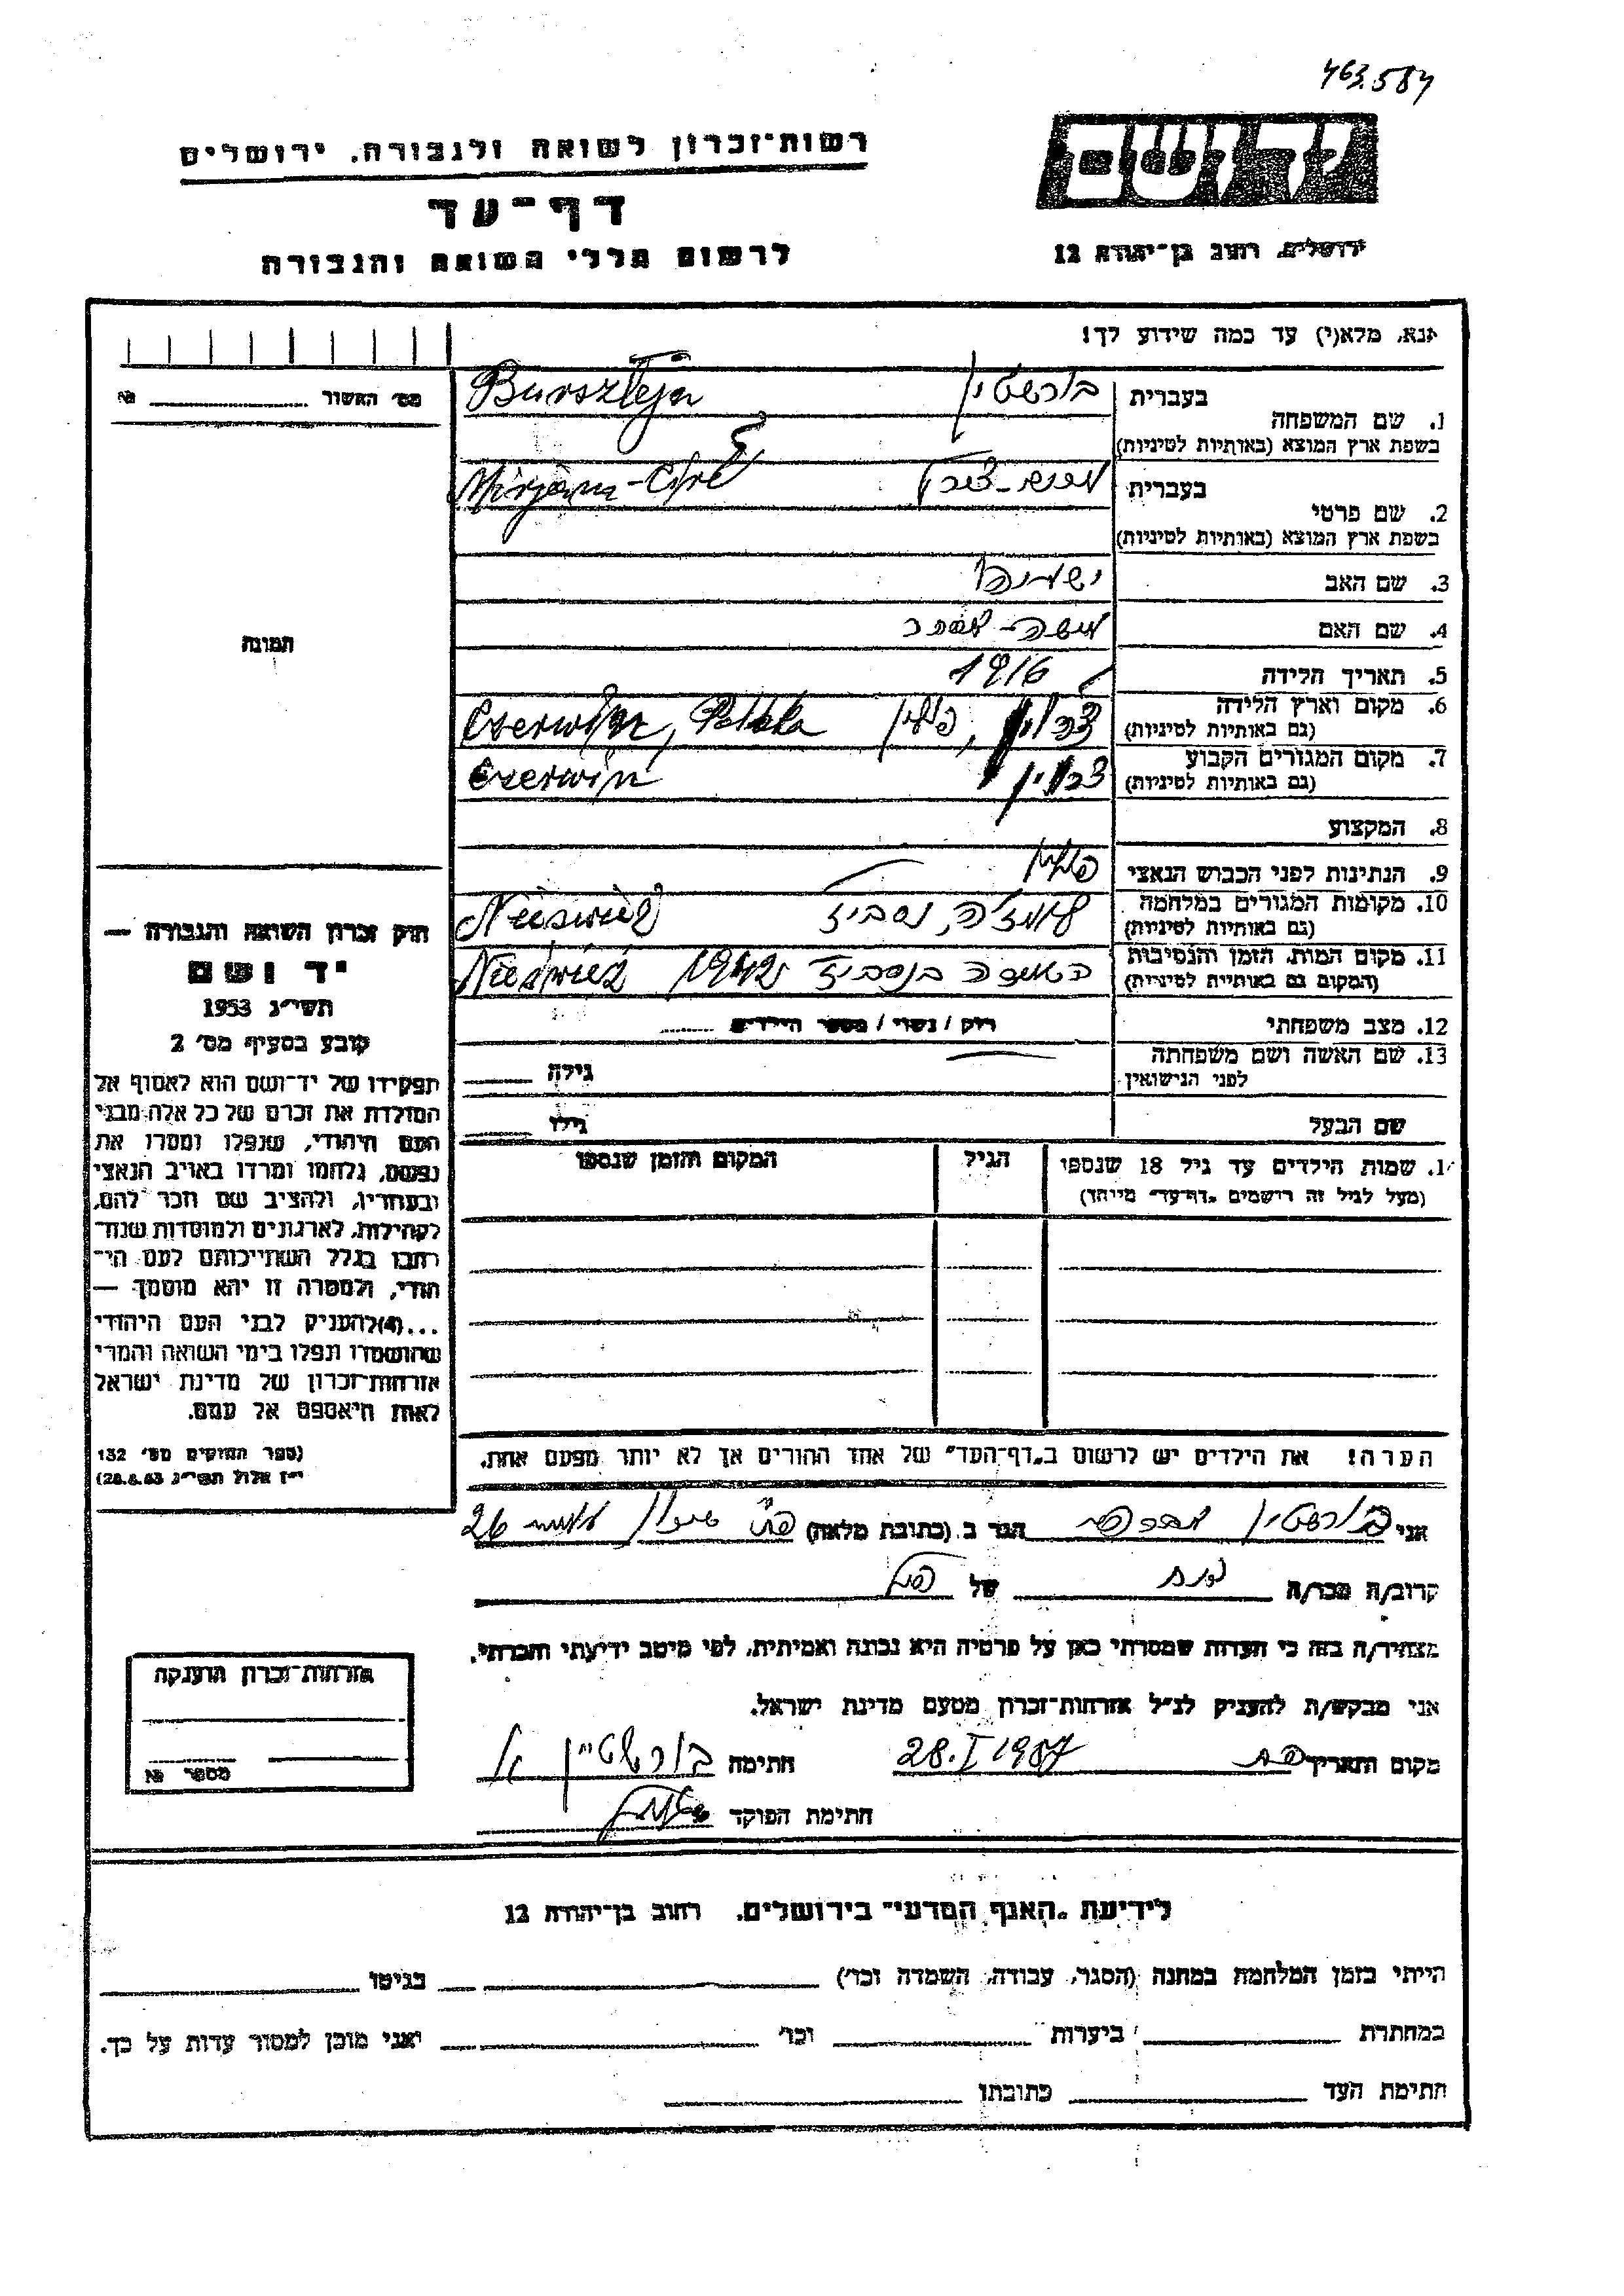 463.584
יד ושם
רשות־זכרון לשואה ולגבורה, ירושלים
דף־עד
לרשום חללי השואה והגבורה
ירושלים, רחוב בן־יהודה 12
אנא, מלא(י) עד כמה שידוע לך!
מס׳ האשור № 
1. שם המשפחה
בעברית בורשטיין Bursztejn
בשפת ארץ המוצא (באותיות לטיניות)
2. שם פרטי
בעברית Mirjam-
בשפת ארץ המוצא (באותיות לטיניות)
3. שם האב ישעיהו
4. שם האם
5. תאריך הלידה 1916
6. מקום וארץ הלידה פולין Czerwin, Polska
(גם באותיות לטיניות)
7. מקום המגורים הקבוע Czerwin
(גם באותיות לטיניות)
8. המקצוע
9. הנתינות לפני הכבוש הנאצי
10. מקומות המגורים במלחמה לומז׳ה, נסביז Nieśwież
(גם באותיות לטיניות)
11. מקום המות, הזמן והנסיבות בנסביז 1942 Nieśwież
(המקום גם באותיות לטיניות)
12. מצב משפחתי רווק / נשוי / מספר הילדים
13. שם האשה ושם משפחתה
לפני הנישואין גילה
שם הבעל גילו
1. שמות הילדים עד גיל 18 שנספו הגיל המקום והזמן שנספו
(מעל לגיל זה רישמים „דף־עד״ מייחד)
הערה! את הילדים יש לרשום ב„דף־העד״ של אחד ההורים אך לא יותר מפעם אחת.
תמונה
חוק זכרון השואה והגבורה —
יד ושם
תשי״ג 1953
קובע בסעיף מס׳ 2
תפקידו של יד־ושם הוא לאסוף אל
המולדת את זכרם של כל אלה מבני
העם היהודי, שנפלו ומסרו את
נפשם, נלחמו ומרדו באויב הנאצי
ובעוזריו, ולהציב שם וזכר להם,
לקהילות, לארגונים ולמוסדות שנח־
רבו בגלל השתייכותם לעם הי־
הודי, ולמטרה זו יהא מוסמך —
...(4)להעניק לבני העם היהודי
שהושמדו ונפלו בימי השואה והמרי
אזרחות־זכרון של מדינת ישראל
לאות היאספם אל עמם.
(ספר החוקים מס׳ 132
י״ז אלול תשי״ג 28.8.53)
אני בורשטיין הגר ב (כתובת מלאה) 26
קרוב/ה מכר/ה של
מצהיר/ה בזה כי העדות שמסרתי כאן על פרטיה היא נכונה ואמיתית, לפי מיטב ידיעתי והכרתי.
אני מבקש/ת להעניק לנ״ל אזרחות־זכרון מטעם מדינת ישראל.
מקום ותאריך 28.I 1987 חתימה בורשטיין
חתימת הפוקד
אזרחות־זכרון הוענקה
מספר №
לידיעת „האגף המדעי״ בירושלים, רחוב בן־יהודה 12
הייתי בזמן המלחמה במחנה (הסגר, עבודה, השמדה וכו׳) בגיטו
במחתרת ביערות וכו׳ ואני מוכן למסור עדות על כך.
חתימת העד כתובתו